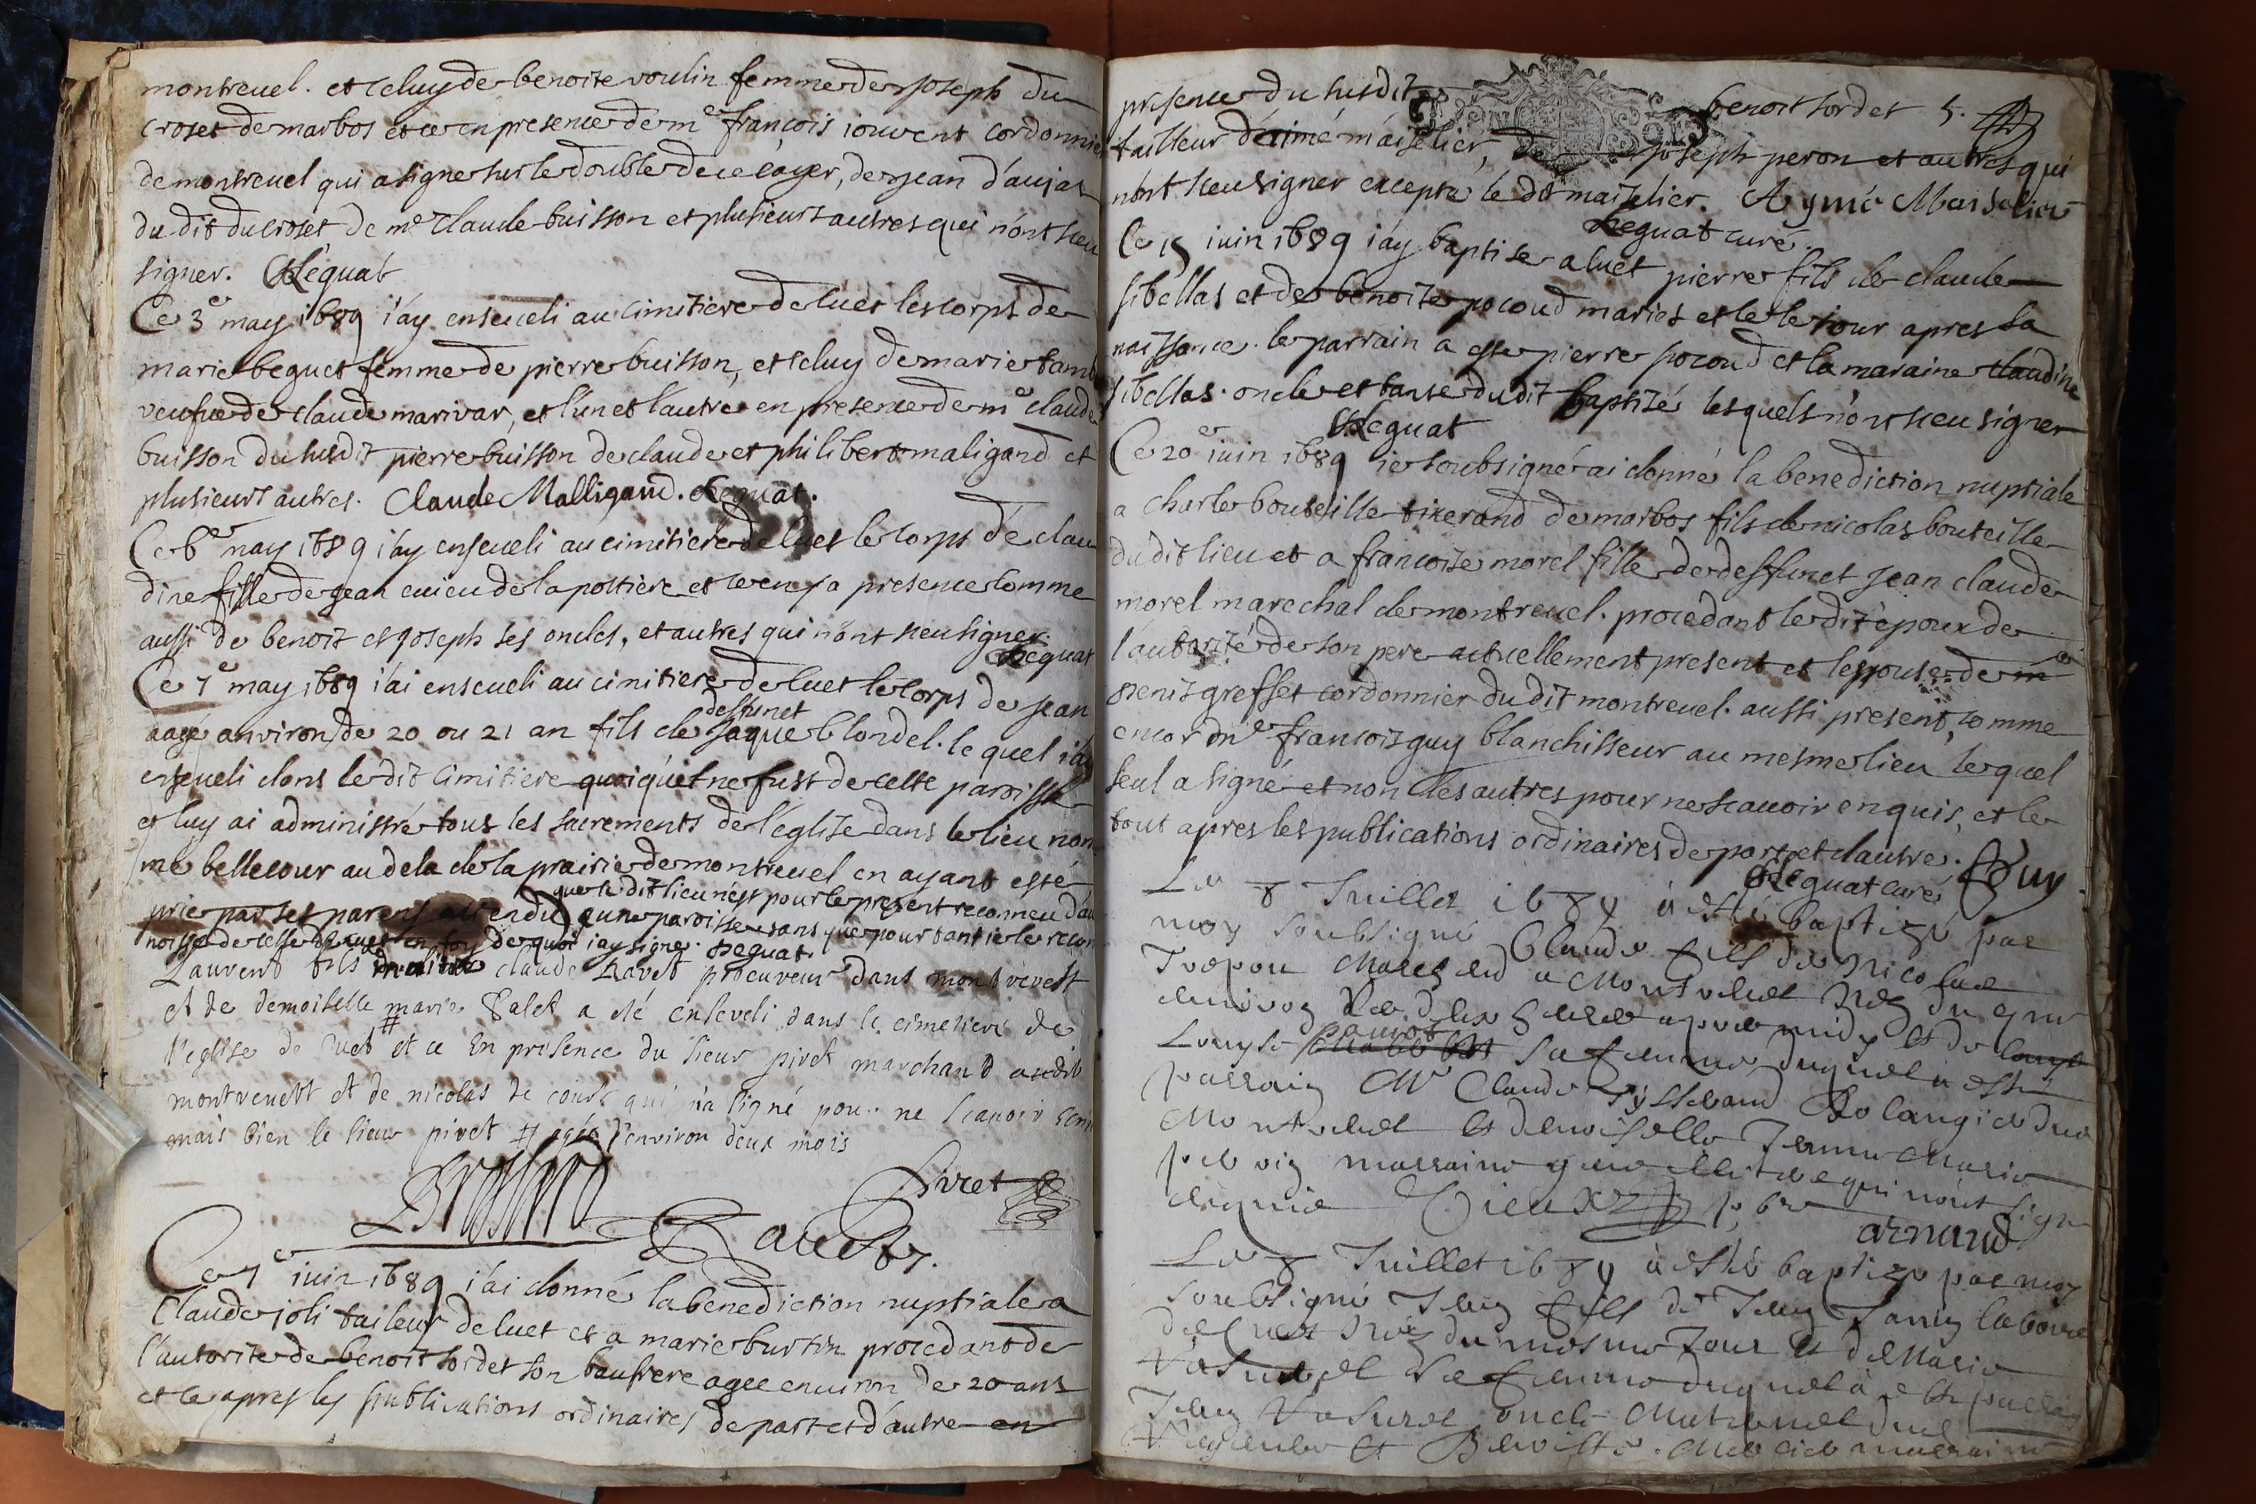 montreuel. et celuy de benoite voulin femme de Joseph du
croset de marbos et ce en presence de me francois iouvent cordonnier
de montreuel qui a signe sur le double de ce cayer, de Jean d'aujat
du dit du croset de me claude buisson et plusieurs autres qui n'ont sceu
signer. Reguat
Ce 3e may 1689 i'ay enseueli au cimitiere de luet les corps de
marie beguet femme de pierre buisson, et celuy de marie
veufue de claude marivar, et l'un et l'autre en presence de me claude
buisson du susdit pierre buisson de claude et philibert maligand et
plusieurs autres. Claude Malligand. Reguat.
Ce 6e may 1689 i'ay enseueli au cimitiere de luet le corps de clau
dine fille de Jean cuieu de la poltiere et ce en sa presence comme
aussi de benoit et Joseph ses oncles, et autres qui n'ont sceu signer.
Reguat
Ce 7e may 1689 i'ai enseueli au cimitiere de luet le corps de Jean
aagé anviron de 20 ou 21 an fils de deffunct Jaque blondel. le quel i'ay
enseueli dans le dit cimitiere quoi qu'il ne fust de cette paroisse
et luy ai administré tous les sacrements de l'eglise dans le lieu nom
mé bellecour au dela de la prairie de montreuel en ayant esté
prié par ses parens attendu que le dit lieu n'est pour le present reconneu d'au
cune paroisse sans que pourtant ie le recon
noisse de celle de luet en foy de quoi i'ay signe. Reguat.
Laurent fils de claude Ravet procureur dans montrevest
et de demoiselle marie Palet a été enseveli dans le cimetiere de
l'eglise de Luet # et ce En presence du sieur piret marchand audit
montreuett et de nicolas de cours qui n'a signé pour ne scavoir
mais bien le sieur piret # agée d'environ deux mois
Piret
Ravet
Ce 7e iuin 1689 i'ai donné la benediction nuptiale a
Claude joli tailleur de luet et a marie burtin procedant de
l'autorite de benoit sordet son baufrere agee enuiron de 20 ans
et ce apres les publications ordinaires de part et d'autre en
presence du susdit benoit sordet 5.
tailleur d'aimé maiselier, de Joseph peron et autres qui
n'ont sceu signer excepté le dit maiselier. Aymé Maiselier
Reguat curé.
Ce 15 iuin 1689 i'ay baptise a luet pierre fils de claude
sibellas et de benoite pocoud mariés et ce le iour apres sa
naissance. le parrain a este pierre pocoud et la maraine claudine
sibellas. oncle et tante du dit baptisé lesquels n'ont sceu signer
Reguat
Ce 20e iuin 1689 ie soubsigné ai donné la benediction nuptiale
a charle bouteille tixerand de marbos fils de nicolas bouteille
du dit lieu et a francoise morel fille de deffunct Jean claude
morel marechal de montreuel. procedant le dit epoux de
l'autorité de son pere actuellement present et l'espouse de me
Denis greffet cordonnier du dit montreuel. aussi present, comme
encor me francois guy blanchisseur au mesme lieu lequel
seul a signé et non les autres pour ne scauoir enquis, et ce
tout apres les publications ordinaires de part et d'autre. Guy
Reguat curé
Le 8 Juillet 1689 a esté baptizé par
moy soubsigné Claude fils de Nicolas
a Montreuel
apres midy et de
Louyse sa femme duquel a esté
parrain Mr Claude Boulangier
Montreuel et demoiselle Jeanne Marie
marraine qui n'ont signé
enquis p,bre
arnaud
Le 8 Juillet 1689 a esté baptizé par moy
soubsigné Jean fils de Jean Jamy
de Luet du mesme Jour et de Marie
sa femme duquel a esté parrain
Jean oncle
et Benoitte marraine